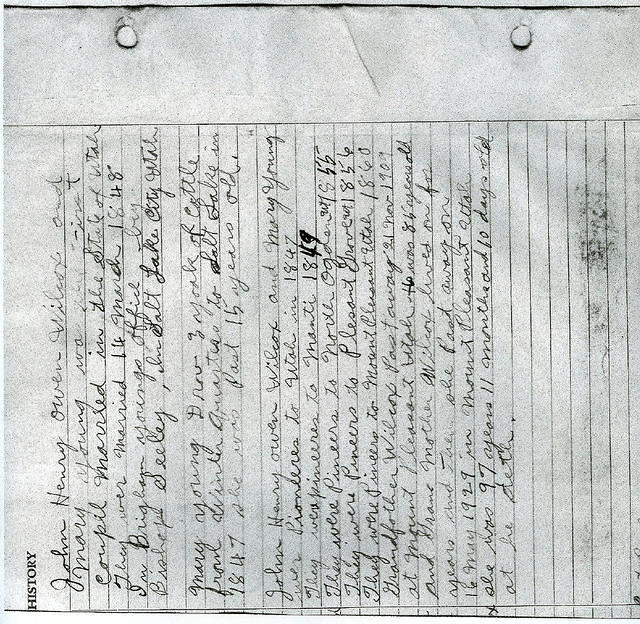 HISTORY
John Henry Owen Wilcox and
Mary Young wa
Coupil Married in the State of Utah
They wer Married 14 March 1848
In Brigham youngs offic by
Bishop Seeley, In Salt Lake City Utah
Mary young Drov 3 yoak of Cattle
from Winter Quarties to Salt Lake in
1847 she was Past 15 years old.
John Henry owen Wilcox and Mary Young
wer Pionderes to Utah in 1847
They wer pineeres to Manti 1849
They were Pineers to North Ogden 1855
They were Pineers to Plesant Grove 1856
They were Pineers to Mount Plesant Utah 1860
Grandfother Wilcox Past away 21 Nov 1909
at Mount Plesant Utah He was 85 years old
and Grand Mother Wilcox lived on for
years and then she Past away on
16 May 1929 in Mount Pleasant Utah
she was 97 years 11 months and 10 days old
at he deth.